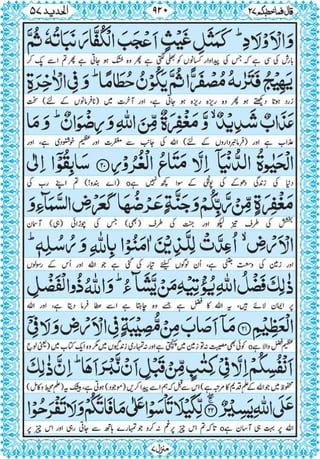 قال فما خطبکم ۲۷ ۹۲۰ الحدید ۵۷
وَالْاَوْلَادِ ؕ كَمَثَلِ غَيْثٍ اَعْجَبَ الْكُفَّارَ نَبَاتُهٗ ثُمَّ
بارش کی سی ہے کہ جس کی پیداوار کسانوں کو بھلی لگتی ہے پھر وہ خشک ہو جاتی ہے پھر تم اسے پک کر
يَهِيْجُ فَتَرٰىهُ مُصْفَرًّا ثُمَّ يَكُوْنُ حُطَامًا ؕ وَفِي الْاٰخِرَةِ
زرد ہوتا دیکھتے ہو پھر وہ ریزہ ریزہ ہو جاتی ہے، اور آخرت میں (نافرمانوں کے لئے) سخت
عَذَابٌ شَدِيْدٌ ۙ وَّمَغْفِرَةٌ مِّنَ اللّٰهِ وَرِضْوَانٌ ؕ وَمَا
عذاب ہے اور (فرمانبرداروں کے لئے) اللہ کی جانب سے مغفرت اور عظیم خوشنودی ہے، اور
الْحَيٰوةُ الدُّنْيَاۤ اِلَّا مَتَاعُ الْغُرُوْرِ ﴿۲۰﴾ سَابِقُوْۤا اِلٰى
دنیا کی زندگی دھوکے کی پونجی کے سوا کچھ نہیں ہےo (اے بندو!) تم اپنے رب کی
مَغْفِرَةٍ مِّنْ رَّبِّكُمْ وَجَنَّةٍ عَرْضُهَا كَعَرْضِ السَّمَآءِ وَ
بخشش کی طرف تیز لپکو اور جنت کی طرف (بھی) جس کی چوڑائی (ہی) آسمان
الْاَرْضِ ۙ اُعِدَّتْ لِلَّذِيْنَ اٰمَنُوْا بِاللّٰهِ وَرُسُلِهٖ ؕ
اور زمین کی وسعت جتنی ہے، اُن لوگوں کیلئے تیار کی گئی ہے جو اللہ اور اُس کے رسولوں
ذٰلِكَ فَضْلُ اللّٰهِ يُؤْتِيْهِ مَنْ يَّشَآءُ ؕ وَاللّٰهُ ذُو الْفَضْلِ
پر ایمان لائے ہیں، یہ اللہ کا فضل ہے جسے وہ چاہتا ہے اسے عطا فرما دیتا ہے، اور اللہ
الْعَظِيْمِ ﴿۲۱﴾ مَاۤ اَصَابَ مِنْ مُّصِيْبَةٍ فِي الْاَرْضِ وَلَا فِيْۤ
عظیم فضل والا ہےo کوئی بھی مصیبت نہ تو زمین میں پہنچتی ہے اور نہ تمہاری زندگیوں میں مگر وہ ایک کتاب میں (یعنی لوحِ
اَنْفُسِكُمْ اِلَّا فِيْ كِتٰبٍ مِّنْ قَبْلِ اَنْ نَّبْرَاَهَا ؕ اِنَّ ذٰلِكَ
محفوظ میں جو اللہ کے علمِ قدیم کا مرتبہ ہے) اس سے قبل کہ ہم اسے پیدا کریں (موجود) ہوتی ہے، بیشک یہ (علمِ محیط و کامل)
عَلَى اللّٰهِ يَسِيْرٌ ﴿۲۲﴾ لِّكَيْلَا تَاْسَوْا عَلٰى مَا فَاتَكُمْ وَلَا تَفْرَحُوْا
اللہ پر بہت ہی آسان ہےo تاکہ تم اس چیز پر غم نہ کرو جو تمہارے ہاتھ سے جاتی رہی اور اس چیز پر نہ
منزل ۷